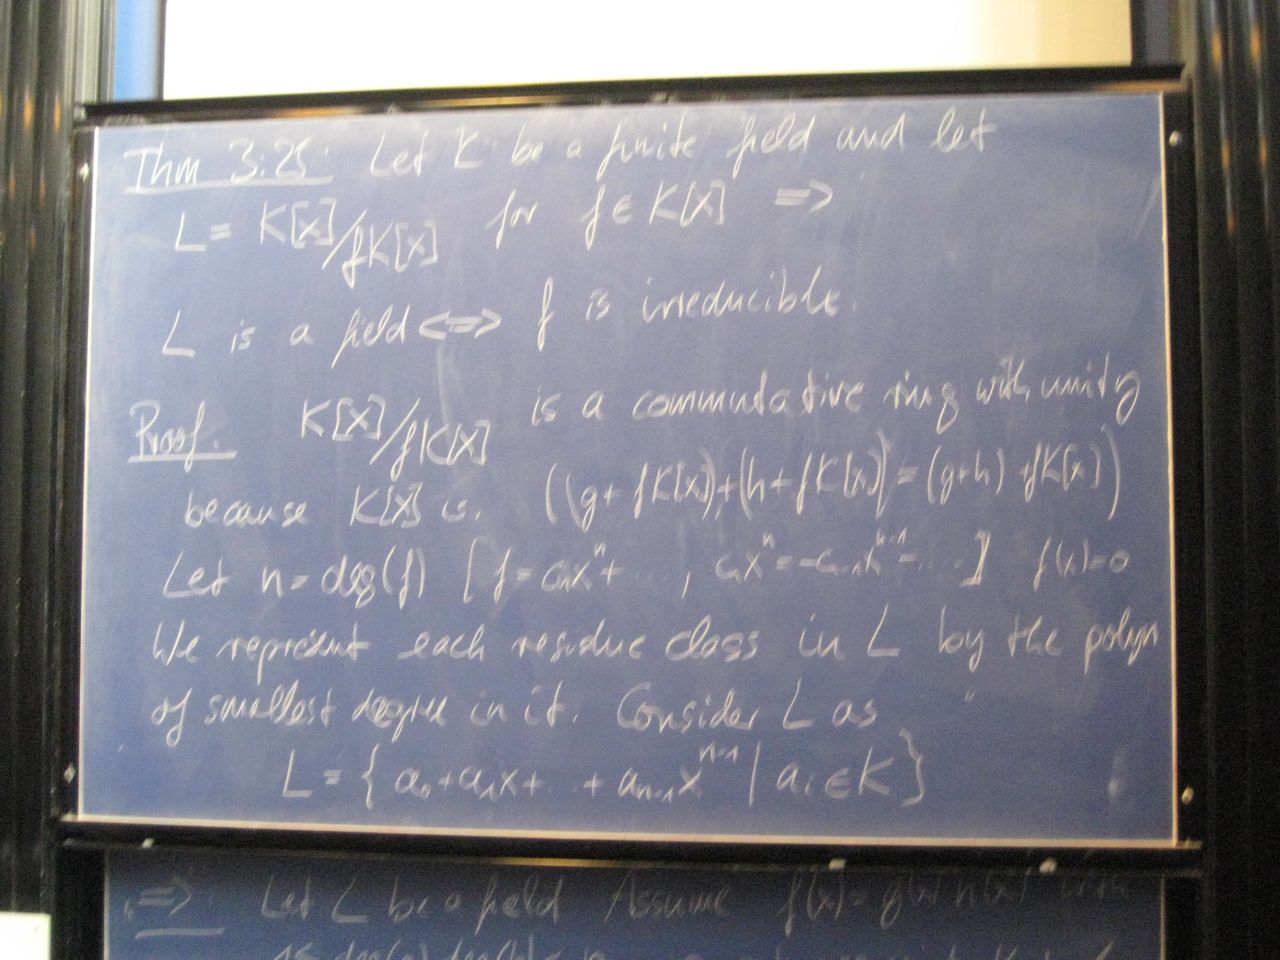 Thm 3.25: Let K be a finite field and let
L = K[x]/fK[x] for f ∈ K[x] =>
L is a field <=> f is irreducible.
Proof. K[x]/fK[x] is a commutative ring with unity
because K[x] is. ((g + fK[x]) + (h + fK[x]) = (g+h) + fK[x])
Let n = deg(f) [f = aₙxⁿ + ..., aₙxⁿ = -aₙ₋₁xⁿ⁻¹ - ...] f(x)=0
We represent each residue class in L by the polyn
of smallest degree in it. Consider L as
L = { a₀ + a₁x + ... + aₙ₋₁xⁿ⁻¹ | aᵢ ∈ K }
=>. Let L be a field Assume f(x) = g(x) h(x) with